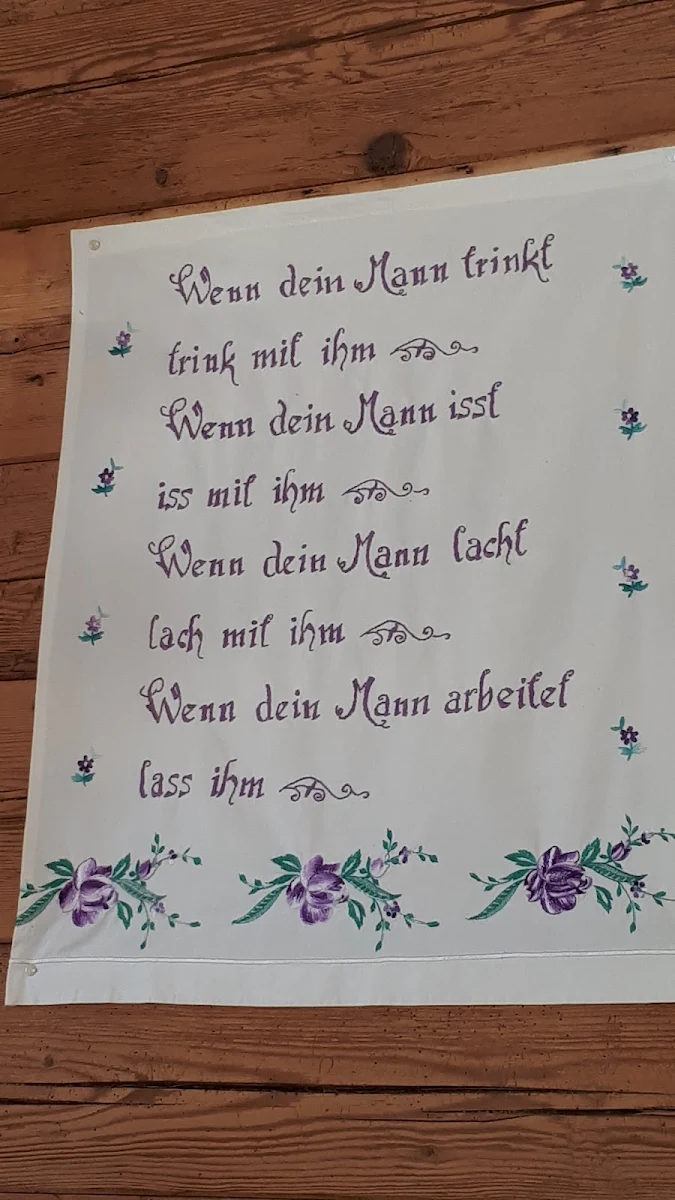 Wenn dein Mann trinkt
trink mit ihm
Wenn dein Mann isst
iss mit ihm
Wenn dein Mann lacht
lach mit ihm
Wenn dein Mann arbeitet
lass ihm